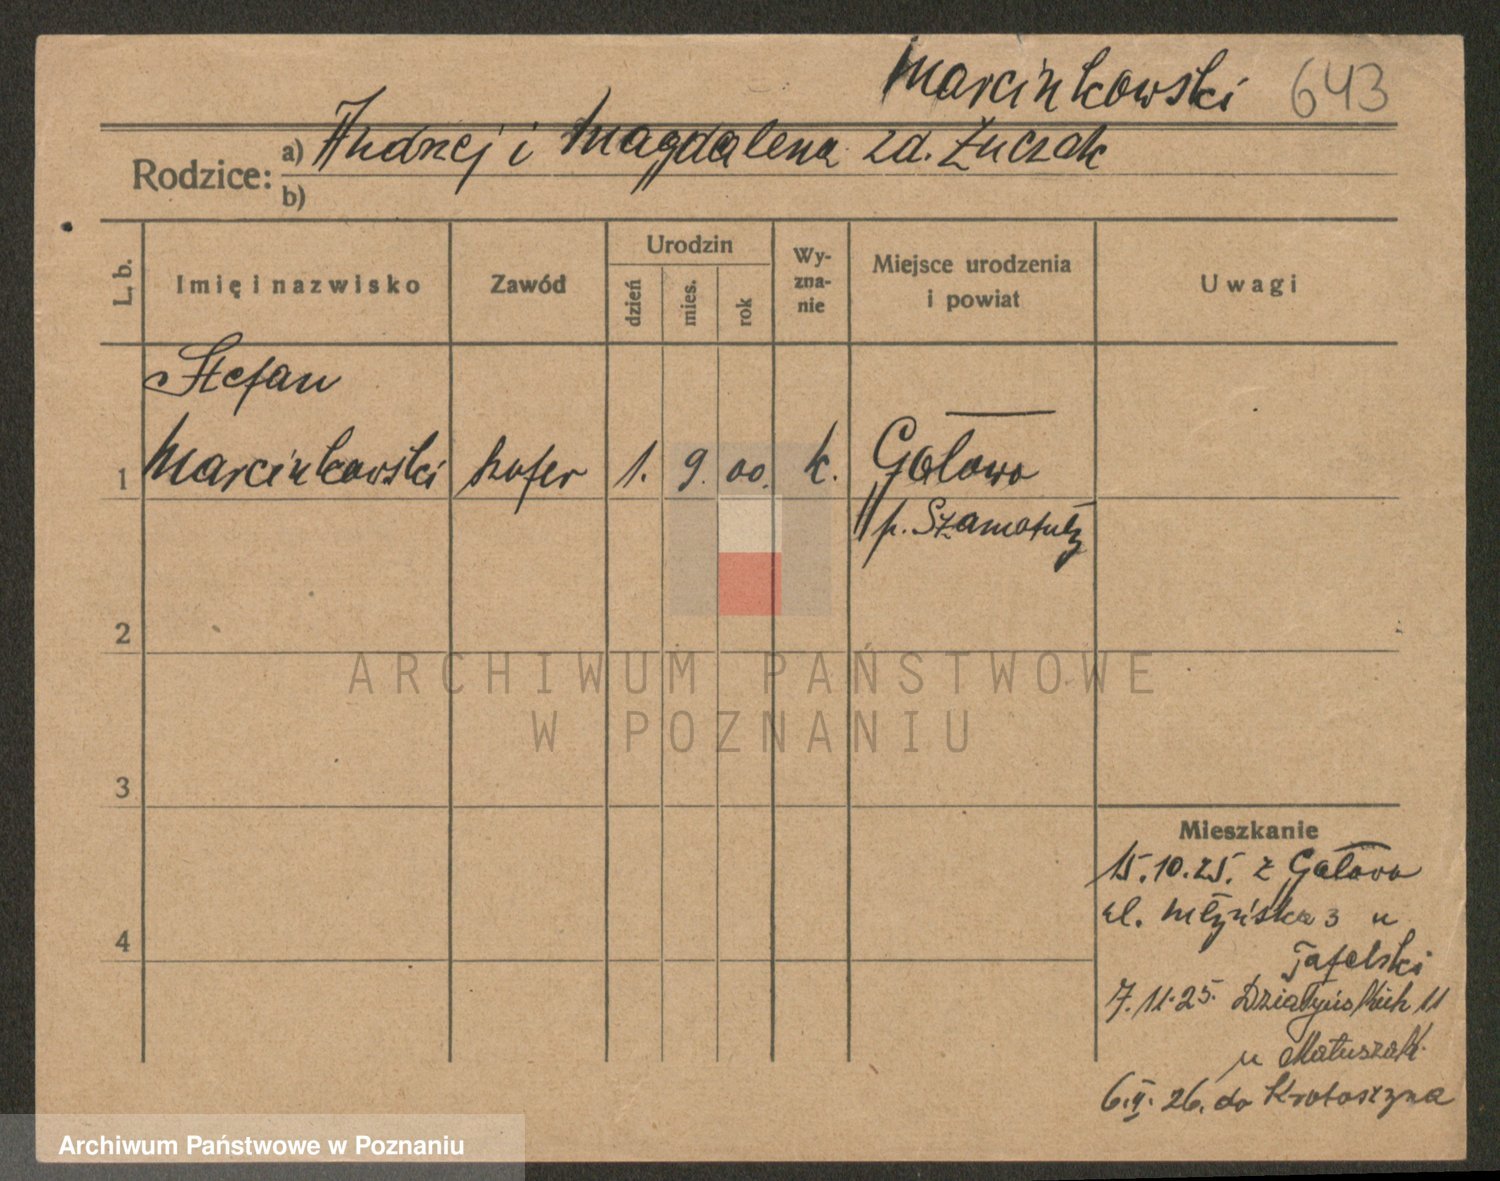 Marcinkowski 643
Rodzice: a) Andrzej i Magdalena zd. Żuczak
b)
L. b.
Imię i nazwisko
Zawód
Urodzin
dzień
mies.
rok
Wy-
zna-
nie
Miejsce urodzenia
i powiat
Uwagi
Stefan
1 Marcinkowski szofer 1. 9. 00. k. Gałowo
p. Szamotuły
2
3
4
Mieszkanie
15.10.25. z Gałowo
ul. Młyńska 3 u
Tafelski
7.11.25. Działyńskich 11
u Matuszak.
6.II.26. do Krotoszyna
ARCHIWUM PAŃSTWOWE
W POZNANIU
Archiwum Państwowe w Poznaniu